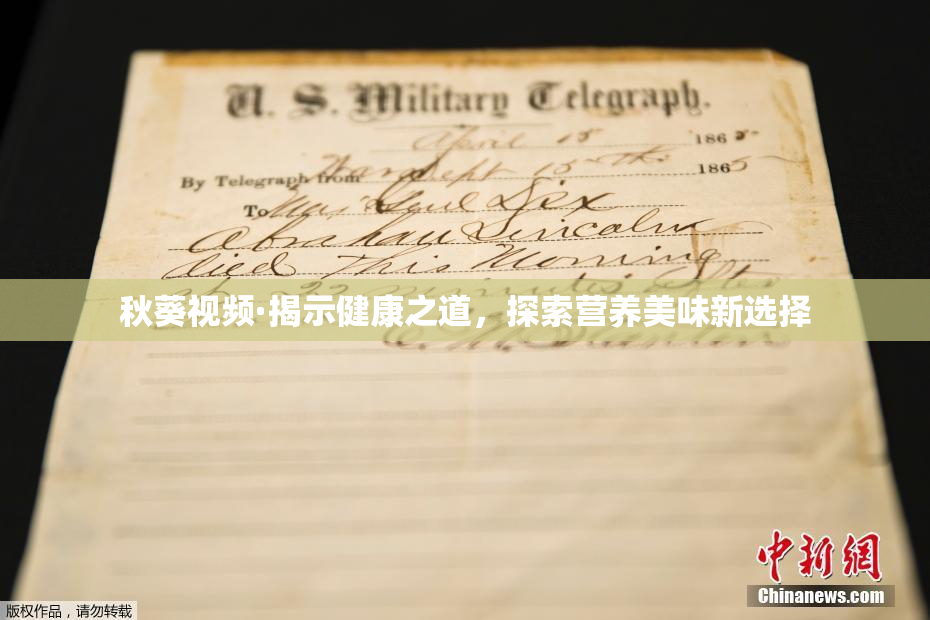 U. S. Military Telegraph.
April 15 1865
By Telegraph from War Dept 15th 1865
To Maj Genl Dix
Abraham Lincoln
died This Morning
at 22 minutes after
秋葵视频·揭示健康之道，探索营养美味新选择
E. M. Stanton
中新网
Chinanews.com
版权作品，请勿转载